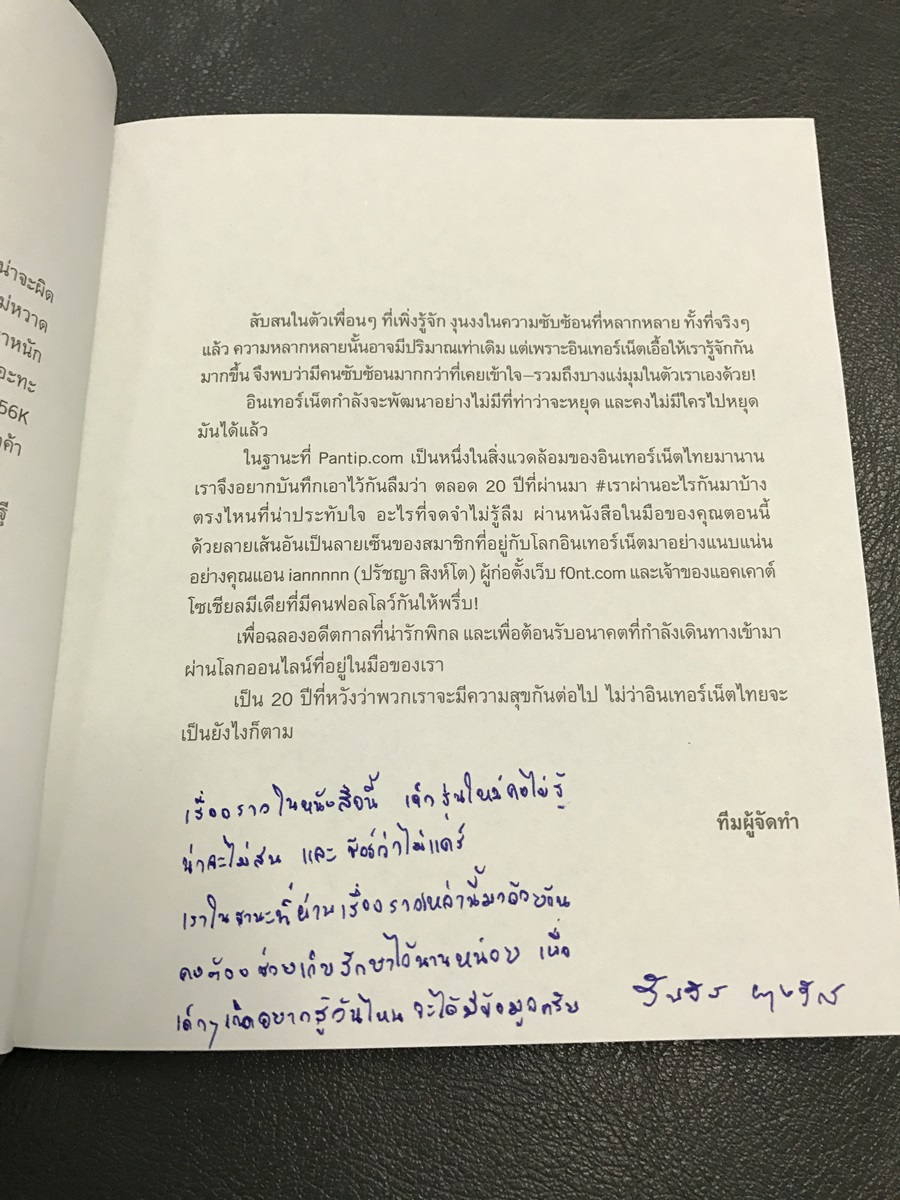 น่าจะผิด
56K
สับสนในตัวเพื่อนๆ ที่เพิ่งรู้จัก งุนงงในความซับซ้อนที่หลากหลาย ทั้งที่จริงๆ
แล้ว ความหลากหลายนั้นอาจมีปริมาณเท่าเดิม แต่เพราะอินเทอร์เน็ตเอื้อให้เรารู้จักกัน
มากขึ้น จึงพบว่ามีคนซับซ้อนมากกว่าที่เคยเข้าใจ–รวมถึงบางแง่มุมในตัวเราเองด้วย!
อินเทอร์เน็ตกำลังจะพัฒนาอย่างไม่มีทีท่าว่าจะหยุด และคงไม่มีใครไปหยุด
มันได้แล้ว
ในฐานะที่ Pantip.com เป็นหนึ่งในสิ่งแวดล้อมของอินเทอร์เน็ตไทยมานาน
เราจึงอยากบันทึกเอาไว้กันลืมว่า ตลอด 20 ปีที่ผ่านมา #เราผ่านอะไรกันมาบ้าง
ตรงไหนที่น่าประทับใจ อะไรที่จดจำไม่รู้ลืม ผ่านหนังสือในมือของคุณตอนนี้
ด้วยลายเส้นอันเป็นลายเซ็นของสมาชิกที่อยู่กับโลกอินเทอร์เน็ตมาอย่างแนบแน่น
อย่างคุณแอน iannnnn (ปรัชญา สิงห์โต) ผู้ก่อตั้งเว็บ f0nt.com และเจ้าของแอคเคาต์
โซเชียลมีเดียที่มีคนฟอลโลว์กันให้พรึ่บ!
เพื่อฉลองอดีตกาลที่น่ารักพิกล และเพื่อต้อนรับอนาคตที่กำลังเดินทางเข้ามา
ผ่านโลกออนไลน์ที่อยู่ในมือของเรา
เป็น 20 ปีที่หวังว่าพวกเราจะมีความสุขกันต่อไป ไม่ว่าอินเทอร์เน็ตไทยจะ
เป็นยังไงก็ตาม
ทีมผู้จัดทำ
เรื่องราวในหนังสือนี้ เด็กรุ่นใหม่คงไม่รู้
น่าจะไม่สน และ ชัวร์ว่าไม่แคร์
เราในฐานะที่ผ่านเรื่องราวเหล่านี้มาด้วยกัน
คงต้องช่วยเก็บรักษาไว้นานหน่อย เผื่อ
เด็กๆ เกิดอยากรู้วันไหน จะได้มีข้อมูลครับ